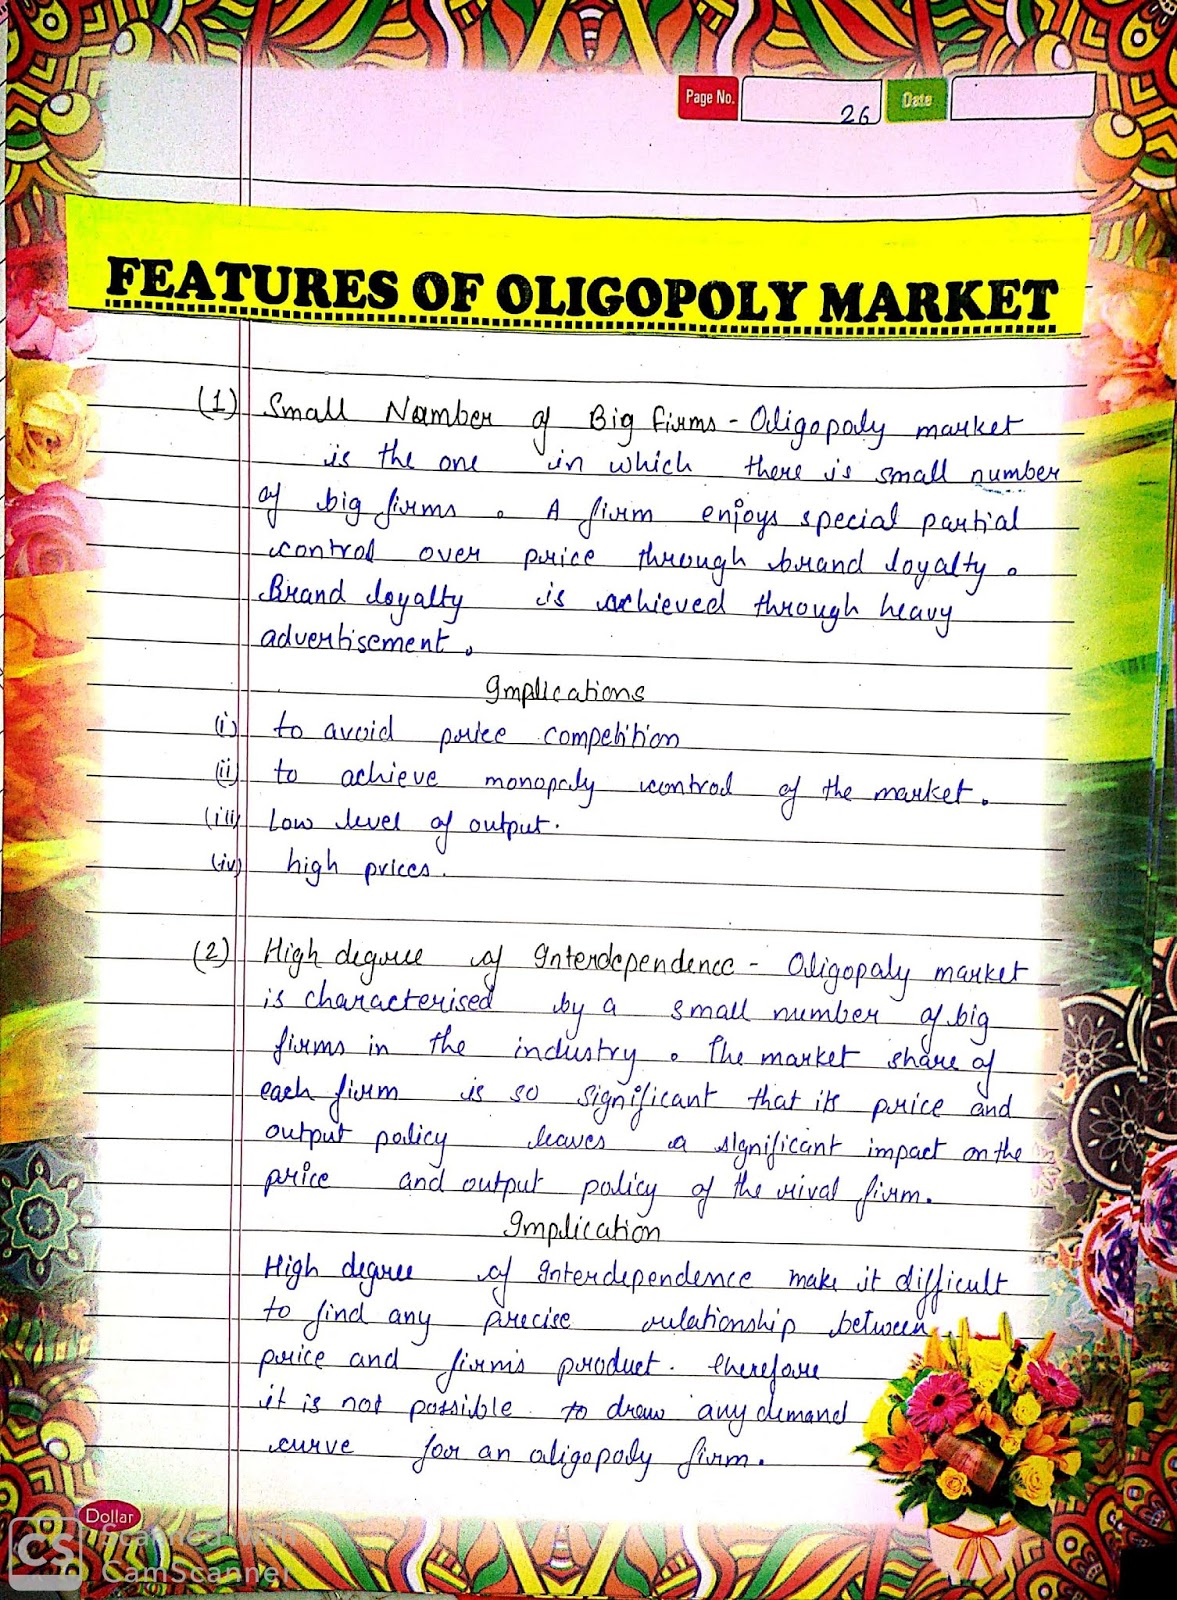 Page No. 26 Date
FEATURES OF OLIGOPOLY MARKET
(1) Small Number of Big Firms - Oligopoly market
is the one in which there is small number
of big firms. A firm enjoys special partial
control over price through brand loyalty.
Brand loyalty is achieved through heavy
advertisement.
Implications
(i) to avoid price competition
(ii) to achieve monopoly control of the market.
(iii) Low level of output.
(iv) high prices.
(2) High degree of Interdependence - Oligopoly market
is characterised by a small number of big
firms in the industry. The market share of
each firm is so significant that its price and
output policy leaves a significant impact on the
price and output policy of the rival firm.
Implication
High degree of Interdependence make it difficult
to find any precise relationship between
price and firm's product. therefore
it is not possible to draw any demand
curve for an oligopoly firm.
Dollar
CS Scanned with
CamScanner